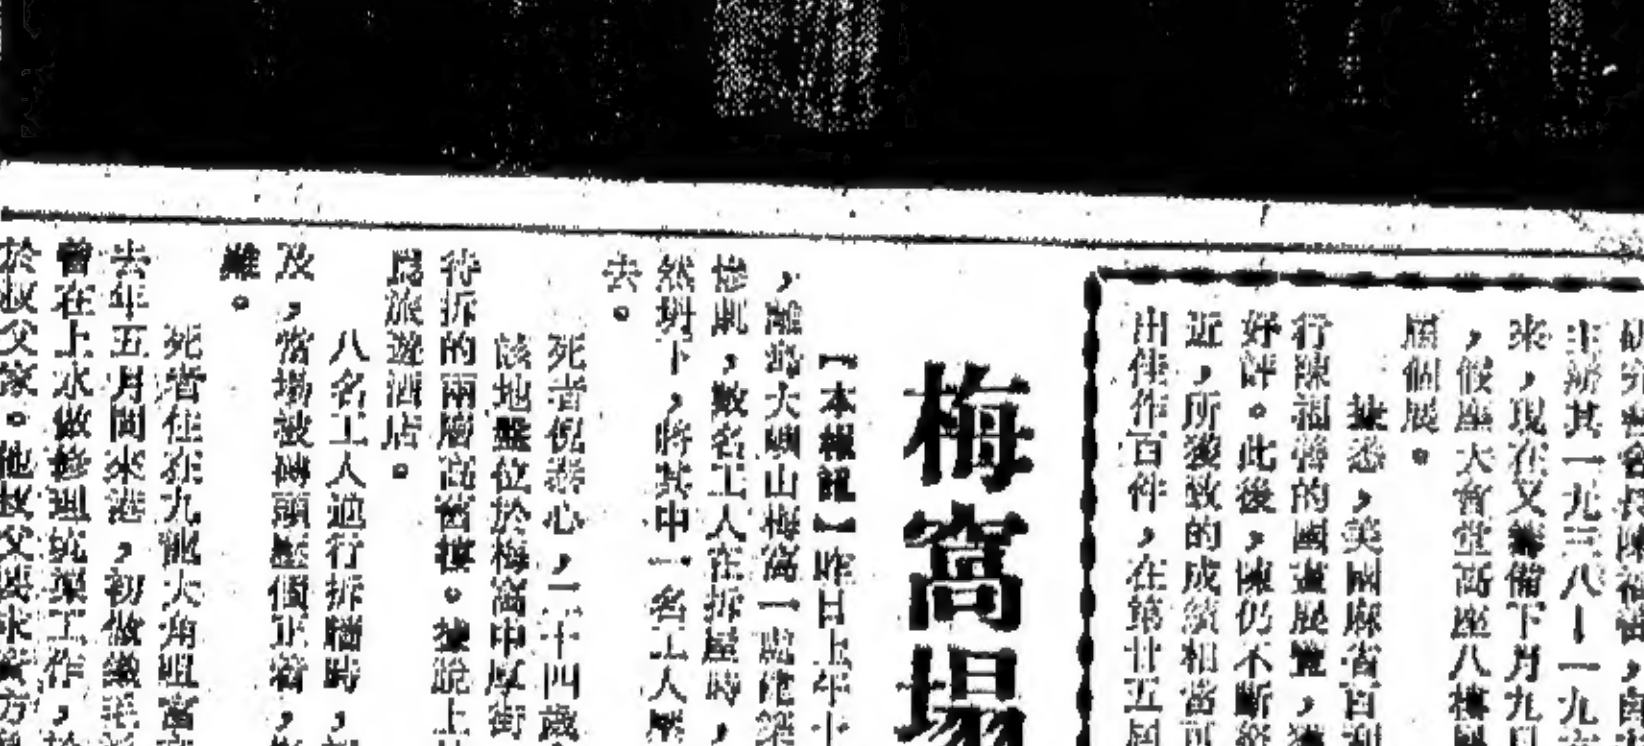 主辦其一九三八—一九
來，現在又籌備下月九日
，假座大會堂高座八樓
個展。
據悉，美國麻省百
行陳福善的國畫展覽，
好評。此後，陳仍不斷
近，所獲致的成績相當可
出佳作百件，在第廿五
梅窩塌
【本報訊】昨日上午十
，離島大嶼山梅窩一處建築
慘劇，數名工人在拆屋時，
然坍下，將其中一名工人壓
去。
死者倪泰心，二十四歲
該地盤位於梅窩中厚街
待拆的兩層高舊樓。據說上
為旅遊酒店。
八名工人進行拆牆時，
及，當場被磚頭壓個正着，
離。
死者住在九龍大角咀富
去年五月間來港，初做織毛
曾在上水做修理坑渠工作，
於叔父家。他叔父